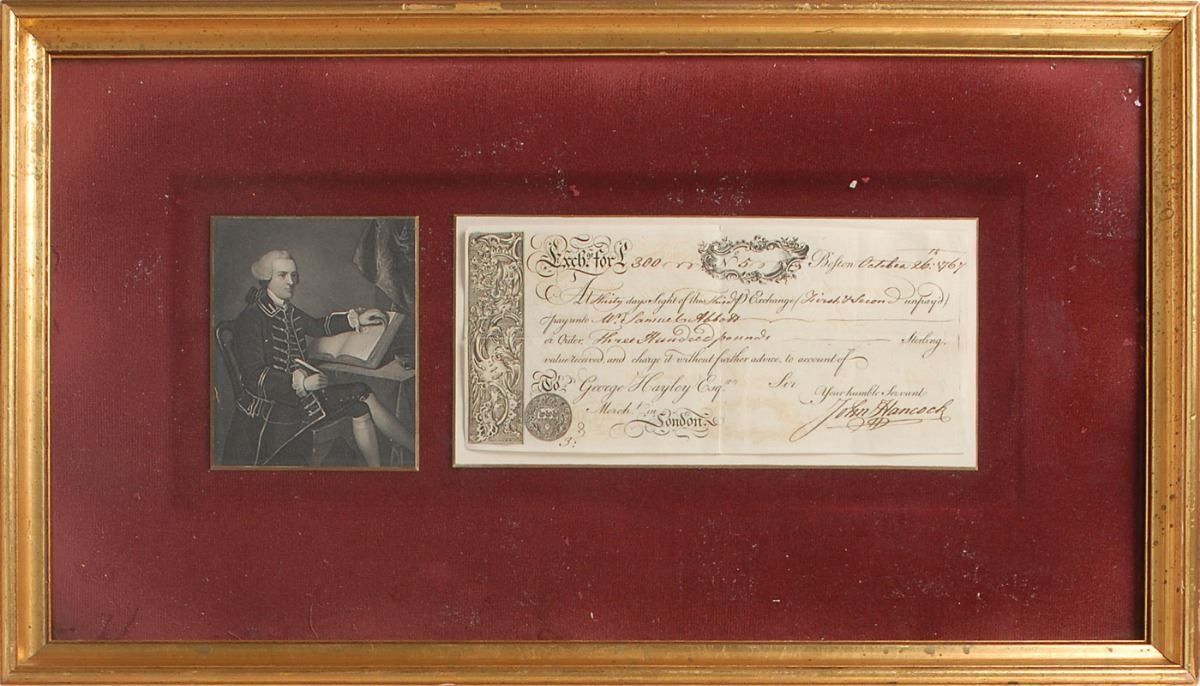 Exchª. for £ 300 Nº 5 Boston October 26th. 1767
At thirty days Sight of this third P Exchange (First & Second unpay'd)
pay unto Mr. Samuel Abbott
or Order, Three Hundred pounds Sterling,
value received, and charge it without further advice, to account of
To George Hayley Esqr. Sir
Your humble Servant
Mercht. in John Hancock
London
3: